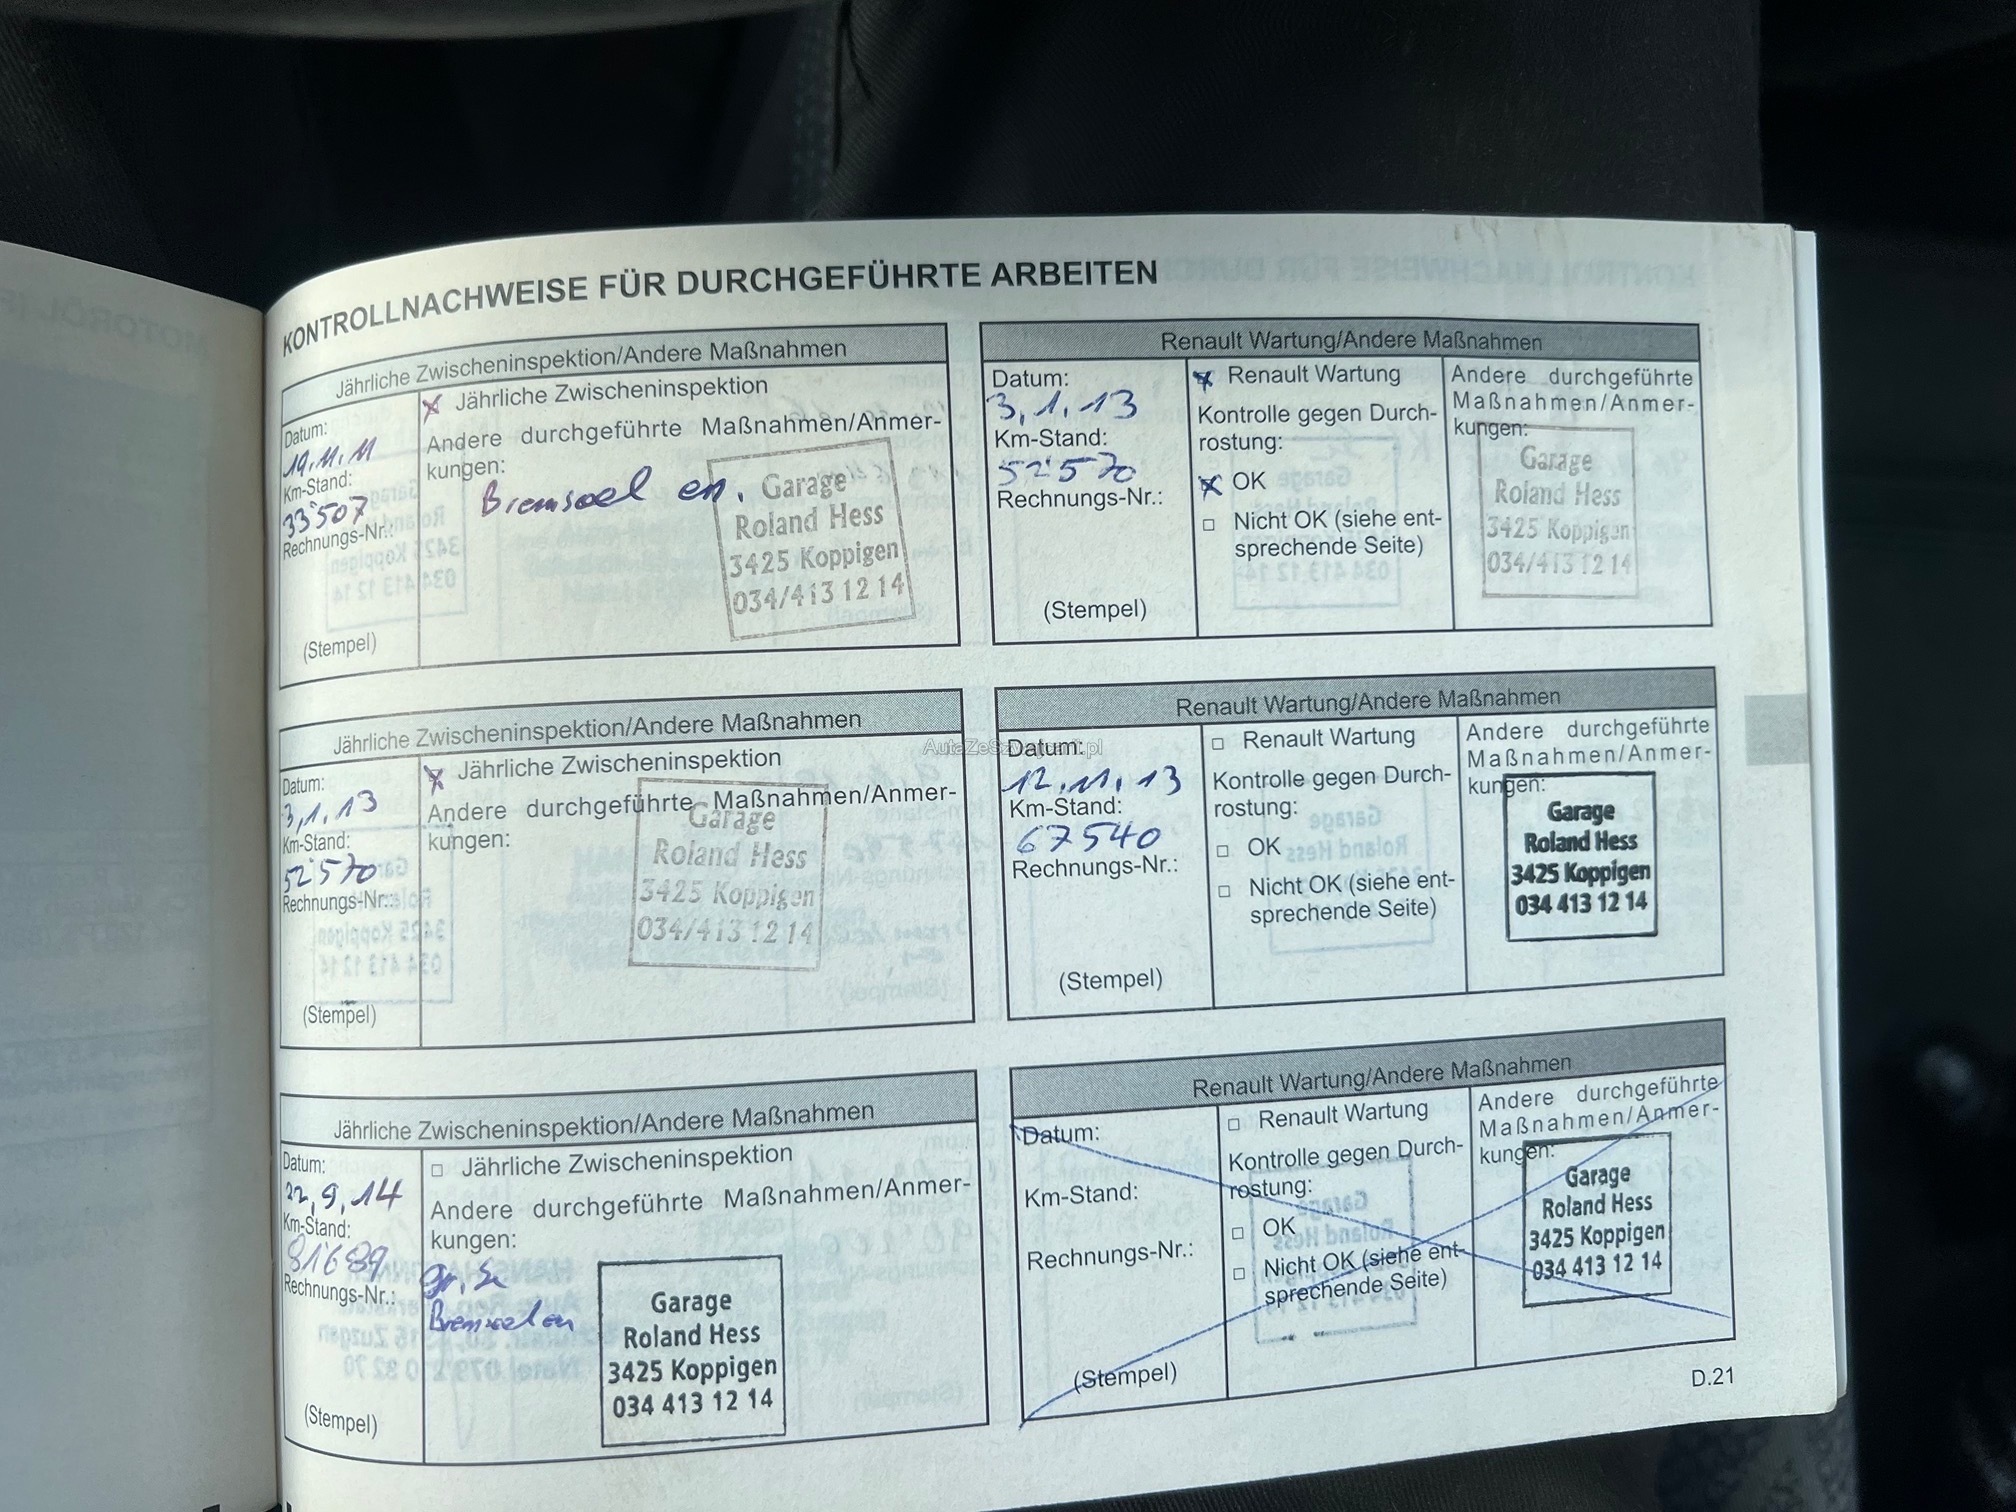 KONTROLLNACHWEISE FÜR DURCHGEFÜHRTE ARBEITEN
Jährliche Zwischeninspektion/Andere Maßnahmen
Datum:
19.11.11
Km-Stand:
33'507
Rechnungs-Nr.:
(Stempel)
Jährliche Zwischeninspektion
Andere durchgeführte Maßnahmen/Anmer-
kungen:
Bremsoel en.
Garage
Roland Hess
3425 Koppigen
034/413 12 14
Renault Wartung/Andere Maßnahmen
Datum:
3,1.13
Km-Stand:
52'570
Rechnungs-Nr.:
(Stempel)
Renault Wartung
Kontrolle gegen Durch-
rostung:
OK
Nicht OK (siehe ent-
sprechende Seite)
Andere durchgeführte
Maßnahmen/Anmer-
kungen:
Garage
Roland Hess
3425 Koppigen
034/413 12 14
Jährliche Zwischeninspektion/Andere Maßnahmen
Datum:
3,1.13
Km-Stand:
52'570
Rechnungs-Nr.:
(Stempel)
Jährliche Zwischeninspektion
Andere durchgeführte Maßnahmen/Anmer-
kungen:
Garage
Roland Hess
3425 Koppigen
034/413 12 14
AutaZeSzwajcarii.pl
Renault Wartung/Andere Maßnahmen
Datum:
12.11.13
Km-Stand:
67540
Rechnungs-Nr.:
(Stempel)
Renault Wartung
Kontrolle gegen Durch-
rostung:
OK
Nicht OK (siehe ent-
sprechende Seite)
Andere durchgeführte
Maßnahmen/Anmer-
kungen:
Garage
Roland Hess
3425 Koppigen
034 413 12 14
Jährliche Zwischeninspektion/Andere Maßnahmen
Datum:
22,9.14
Km-Stand:
81'689
Rechnungs-Nr.:
(Stempel)
Jährliche Zwischeninspektion
Andere durchgeführte Maßnahmen/Anmer-
kungen:
gr. Se
Bremsoel en
Garage
Roland Hess
3425 Koppigen
034 413 12 14
Renault Wartung/Andere Maßnahmen
Datum:
Km-Stand:
Rechnungs-Nr.:
(Stempel)
Renault Wartung
Kontrolle gegen Durch-
rostung:
OK
Nicht OK (siehe ent-
sprechende Seite)
Andere durchgeführte
Maßnahmen/Anmer-
kungen:
Garage
Roland Hess
3425 Koppigen
034 413 12 14
D.21